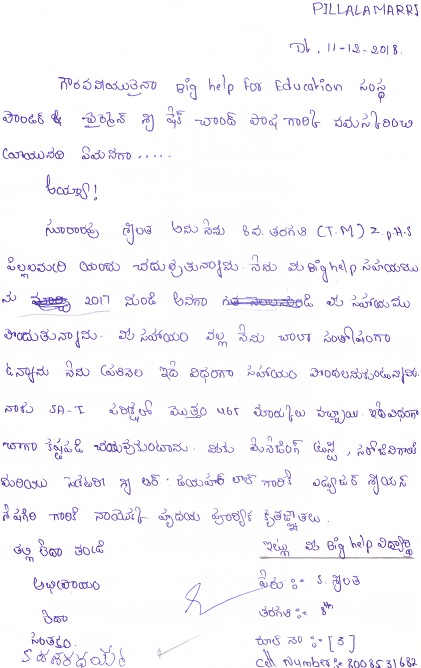 PILLALAMARRI
Dt. 11-12-2018.
గౌరవనీయులైనా Big help for Education సంస్థ
ఫౌండర్ & ఛైర్మెన్ శ్రీ షేక్ చాంద్ పాష గారికి నమస్కరించి
వ్రాయునది ఏమనగా .....
అయ్యా!
సూరారపు శ్రీలత అను నేను 8వ. తరగతి (T.M) Z.P.H.S
పిల్లలమర్రి యందు చదువుతున్నాను. నేను మీ Big help సహాయము
ను 2017 నుండి అనగా మీ సహాయము
పొందుతున్నాను. మీ సహాయం వల్ల నేను చాలా సంతోషంగా
ఉన్నాను నేను ప్రతినెల ఇదే విధంగా సహాయం పొందాలనుకుంటున్నాను.
నాకు SA-I పరీక్షల్లో మొత్తం 465 మార్కులు వచ్చాయి. ఇదేవిధంగా
బాగా కష్టపడి చదువుకుంటాను. మీకు మేనేజింగ్ ట్రస్టీ, సరోజినిగారికి
మరియు సెక్రటరీ శ్రీ ఆర్. జయహర్ లాల్ గారికి ఎడ్యుకేటర్ శ్రీయన్
శేషగిరి గారికి నాయొక్క హృదయ పూర్వక కృతజ్ఞతలు.
తల్లి లేదా తండ్రి
ఇట్లు మీ Big help విద్యార్థి
అభిప్రాయం
పేరు :- S. శ్రీలత
లేదా
తరగతి :- 8th
సంతకం.
రూల్ నెం :- [5]
Cell Number :- 8008531682